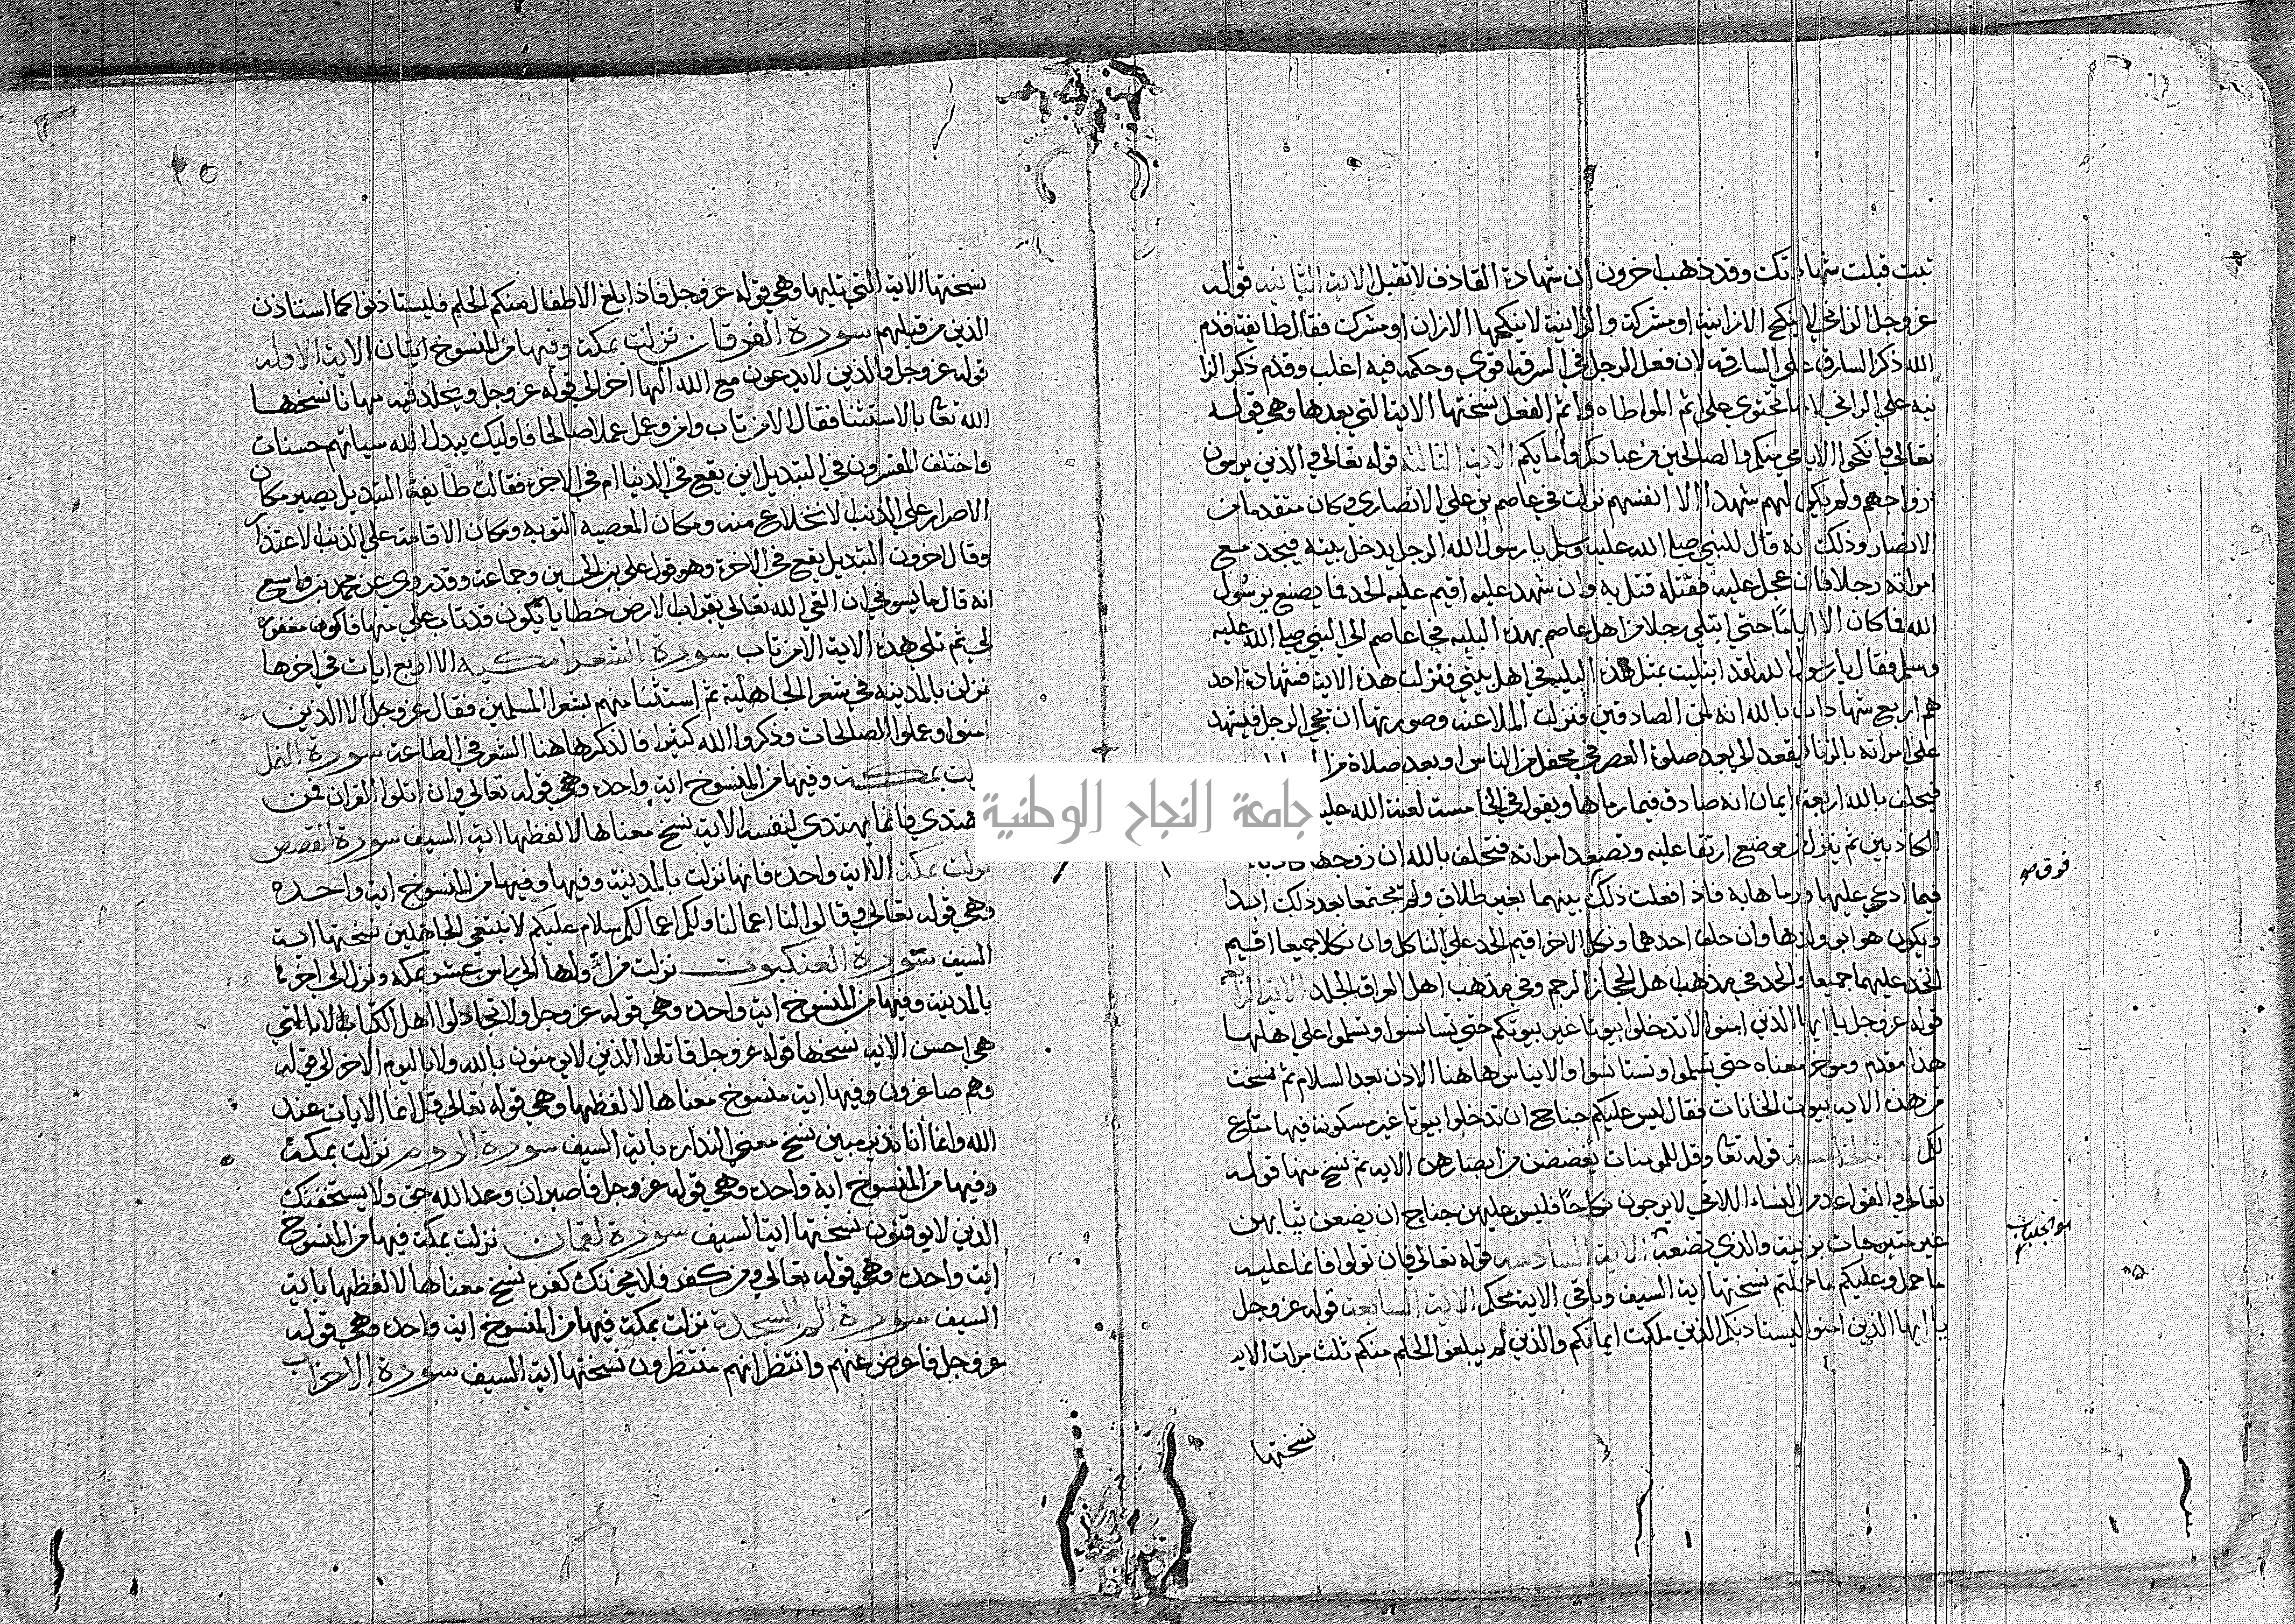 تبت قبلت شهادتك وقد ذهب اخرون ان شهادة القاذف لا تقبل الاية الثانيه قوله
عز وجل الزاني لا ينكح الا زانية او مشركة والزانية لا ينكحها الا زان او مشرك فقال طايفة قدم
الله ذكر السارق علي السارقه لان فعل الرجل في السرقة اقوي وحكمه فيه اغلب وقدم ذكر الزا
نيه علي الزاني لانها تحتوي علي اثم المواطاه واثم الفعل نسختها الاية التي بعدها وهي قوله
تعالي وانكحوا الايامي منكم والصالحين من عبادكم وامايكم الاية الثالثه قوله تعالي والذين يرمون
ازواجهم ولم يكن لهم شهدا الا انفسهم نزلت في عاصم بن علي الانصاري وكان متقدما في
الانصار وذلك انه قال للنبي صلي الله عليه وسلم يا رسول الله الرجل يدخل بيته فيجد مع
امراته رجلا فان عجل عليه فقتله قتل به وان شهد عليه اقيم عليه الحد فما يصنع يرسول
الله فما كان الا اياما حتي ابتلي رجلا من اهل عاصم بهذه البليه فجا عاصم الي النبي صلي الله عليه
وسلم فقال يا رسول الله لقد ابتليت بمثل هذه البليه في اهل بيتي فنزلت هذه الاية فشهادة احد
هم اربع شهادات بالله انه لمن الصادقين فنزلت الملاعنه وصورتها ان يجي الرجل فيشهد
علي امراته بالزنا فيقعد الي بعد صلوة العصر في محفل من الناس او بعد صلاة من
فيحلف بالله اربعة ايمان انه صادق فيما رماها ويقول في الخامسة لعنة الله عليه
الكاذبين ثم ينزل من موضع ارتقا عليه وتصعد امراته فتحلف بالله ان زوجها كاذبا
فيما ادعي عليها ورماها به فاذا فعلت ذلك بينهما بغير طلاق ولم يجتمعا بعد ذلك ابدا
ويكون هو ابو ولدها وان حلف احدهما ونكل الاخر اقيم الحد علي الناكل وان نكلا جميعا اقيم
الحد عليهما جميعا والحد في مذهب اهل الحجاز الرجم وفي مذهب اهل العراق الجلد الاية الرا
قوله عز وجل يا ايها الذين امنوا لا تدخلوا بيوتا غير بيوتكم حتي تستانسوا وتسلموا علي اهلها
هذا مقدم وموخر معناه حتي تسلموا وتستانسوا والايناس هاهنا الاذن بعد السلام ثم نسخت
من هذه الايه بيوت الخانات فقال ليس عليكم جناح ان تدخلوا بيوتا غير مسكونة فيها متاع
لكم الاية الخامسه قوله تعا وقل للمومنات يغضضن من ابصارهن الايه ثم نسخ منها قوله
تعالي والقواعد من النساء اللاتي لا يرجون نكاحا فليس عليهن جناح ان يضعن ثيابهن
غير متبرجات بزينة والذي تضعه الاية السادسه قوله تعالي فان تولوا فانما عليه
ما حمل وعليكم ما حملتم نسختها اية السيف وباقي الاية محكم الاية السابعة قوله عز وجل
يا ايها الذين امنوا ليستاذنكم الذين ملكت ايمانكم والذين لم يبلغوا الحلم منكم ثلث مرات الايه
نسختها
فوق صح
نسختها الاية التي تليها وهي قوله عز وجل فاذا بلغ الاطفال منكم الحلم فليستاذنوا كما استاذن
الذين من قبلهم سورة الفرقان نزلت بمكة وفيها من المنسوخ ايتان الاية الاوله
قوله عز وجل والذين لا يدعون مع الله الها اخر الي قوله عز وجل ويخلد فيه مهانا نسخها
الله تعا بالاستثنا فقال الا من تاب وامن وعمل عملا صالحا فاوليك يبدل الله سياتهم حسنات
واختلف المفسرون في التبديل اين يقع في الدنيا ام في الاخرة فقالت طايفة التبديل يصير مكان
الاصرار علي الذنب الانخلاع منه ومكان المعصيه التوبه ومكان الاقامة علي الذنب الاعتذار
وقال اخرون التبديل يقع في الاخرة وهو قول علي بن الحسين وجماعة وقد روي عن محمد بن واسع
انه قال ما يسوني ان القي الله تعالي بقراب الارض خطايا تكون قد تاب علي منها فاكون مغفورا
لي ثم تلي هذه الاية الا من تاب سورة الشعرا مكيه الا اربع ايات في اخرها
نزلن بالمدينه في شعر الجاهلية ثم استثنا منهم شعرا المسلمين فقال عز وجل الا الذين
امنوا وعملوا الصالحات وذكروا الله كثيرا فالذكر هاهنا الشعر في الطاعة سورة النمل
نزلت بمكة وفيها من المنسوخ اية واحده وهي قوله تعالي وان اتلوا القران فمن
اهتدي فانما يهتدي لنفسه الاية نسخ معناها لا لفظها اية السيف سورة القصص
نزلت بمكة الا اية واحده فانها نزلت بالمدينة وفيها وفيها من المنسوخ اية واحده
وهي قوله تعالي وقالوا لنا اعمالنا ولكم اعمالكم سلام عليكم لا نبتغي الجاهلين نسختها اية
السيف سورة العنكبوت نزلت من اولها الي راس عشر بمكه ونزل الي اخرها
بالمدينة وفيها من المنسوخ اية واحده وهي قوله عز وجل ولا تجادلوا اهل الكتاب الا بالتي
هي احسن الايه نسخها قوله عز وجل قاتلوا الذين لا يومنون بالله ولا باليوم الاخر الي قوله
وهم صاغرون وفيها اية منسوخ معناها لا لفظها وهي قوله تعالي قل انما الايات عند
الله وانما انا نذير مبين نسخ معني النذاره باية السيف سورة الروم نزلت بمكة
وفيها من المنسوخ اية واحده وهي قوله عز وجل فاصبر ان وعد الله حق ولا يستخفنك
الذين لا يوقنون نسختها اية السيف سورة لقمان نزلت بمكة فيها من المنسوخ
اية واحده وهي قوله تعالي ومن كفر فلا يحزنك كفره نسخ معناها لا لفظها باية
السيف سورة الم السجدة نزلت بمكة فيها من المنسوخ اية واحده وهي قوله
عز وجل فاعرض عنهم وانتظر انهم منتظرون نسختها اية السيف سورة الاحزاب
جامعة النجاح الوطنية